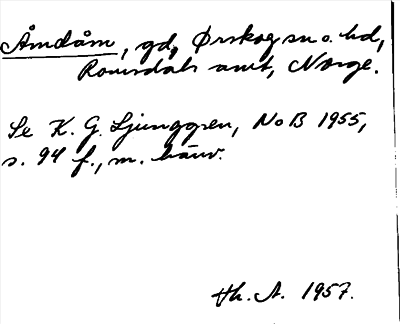 Åmdåm, gd, Ørskog sn o. hd,
Romsdals amt, Norge.
Se K. G. Ljunggren, NoB 1955,
s. 94 f., m. hänv.
Th. A. 1957.